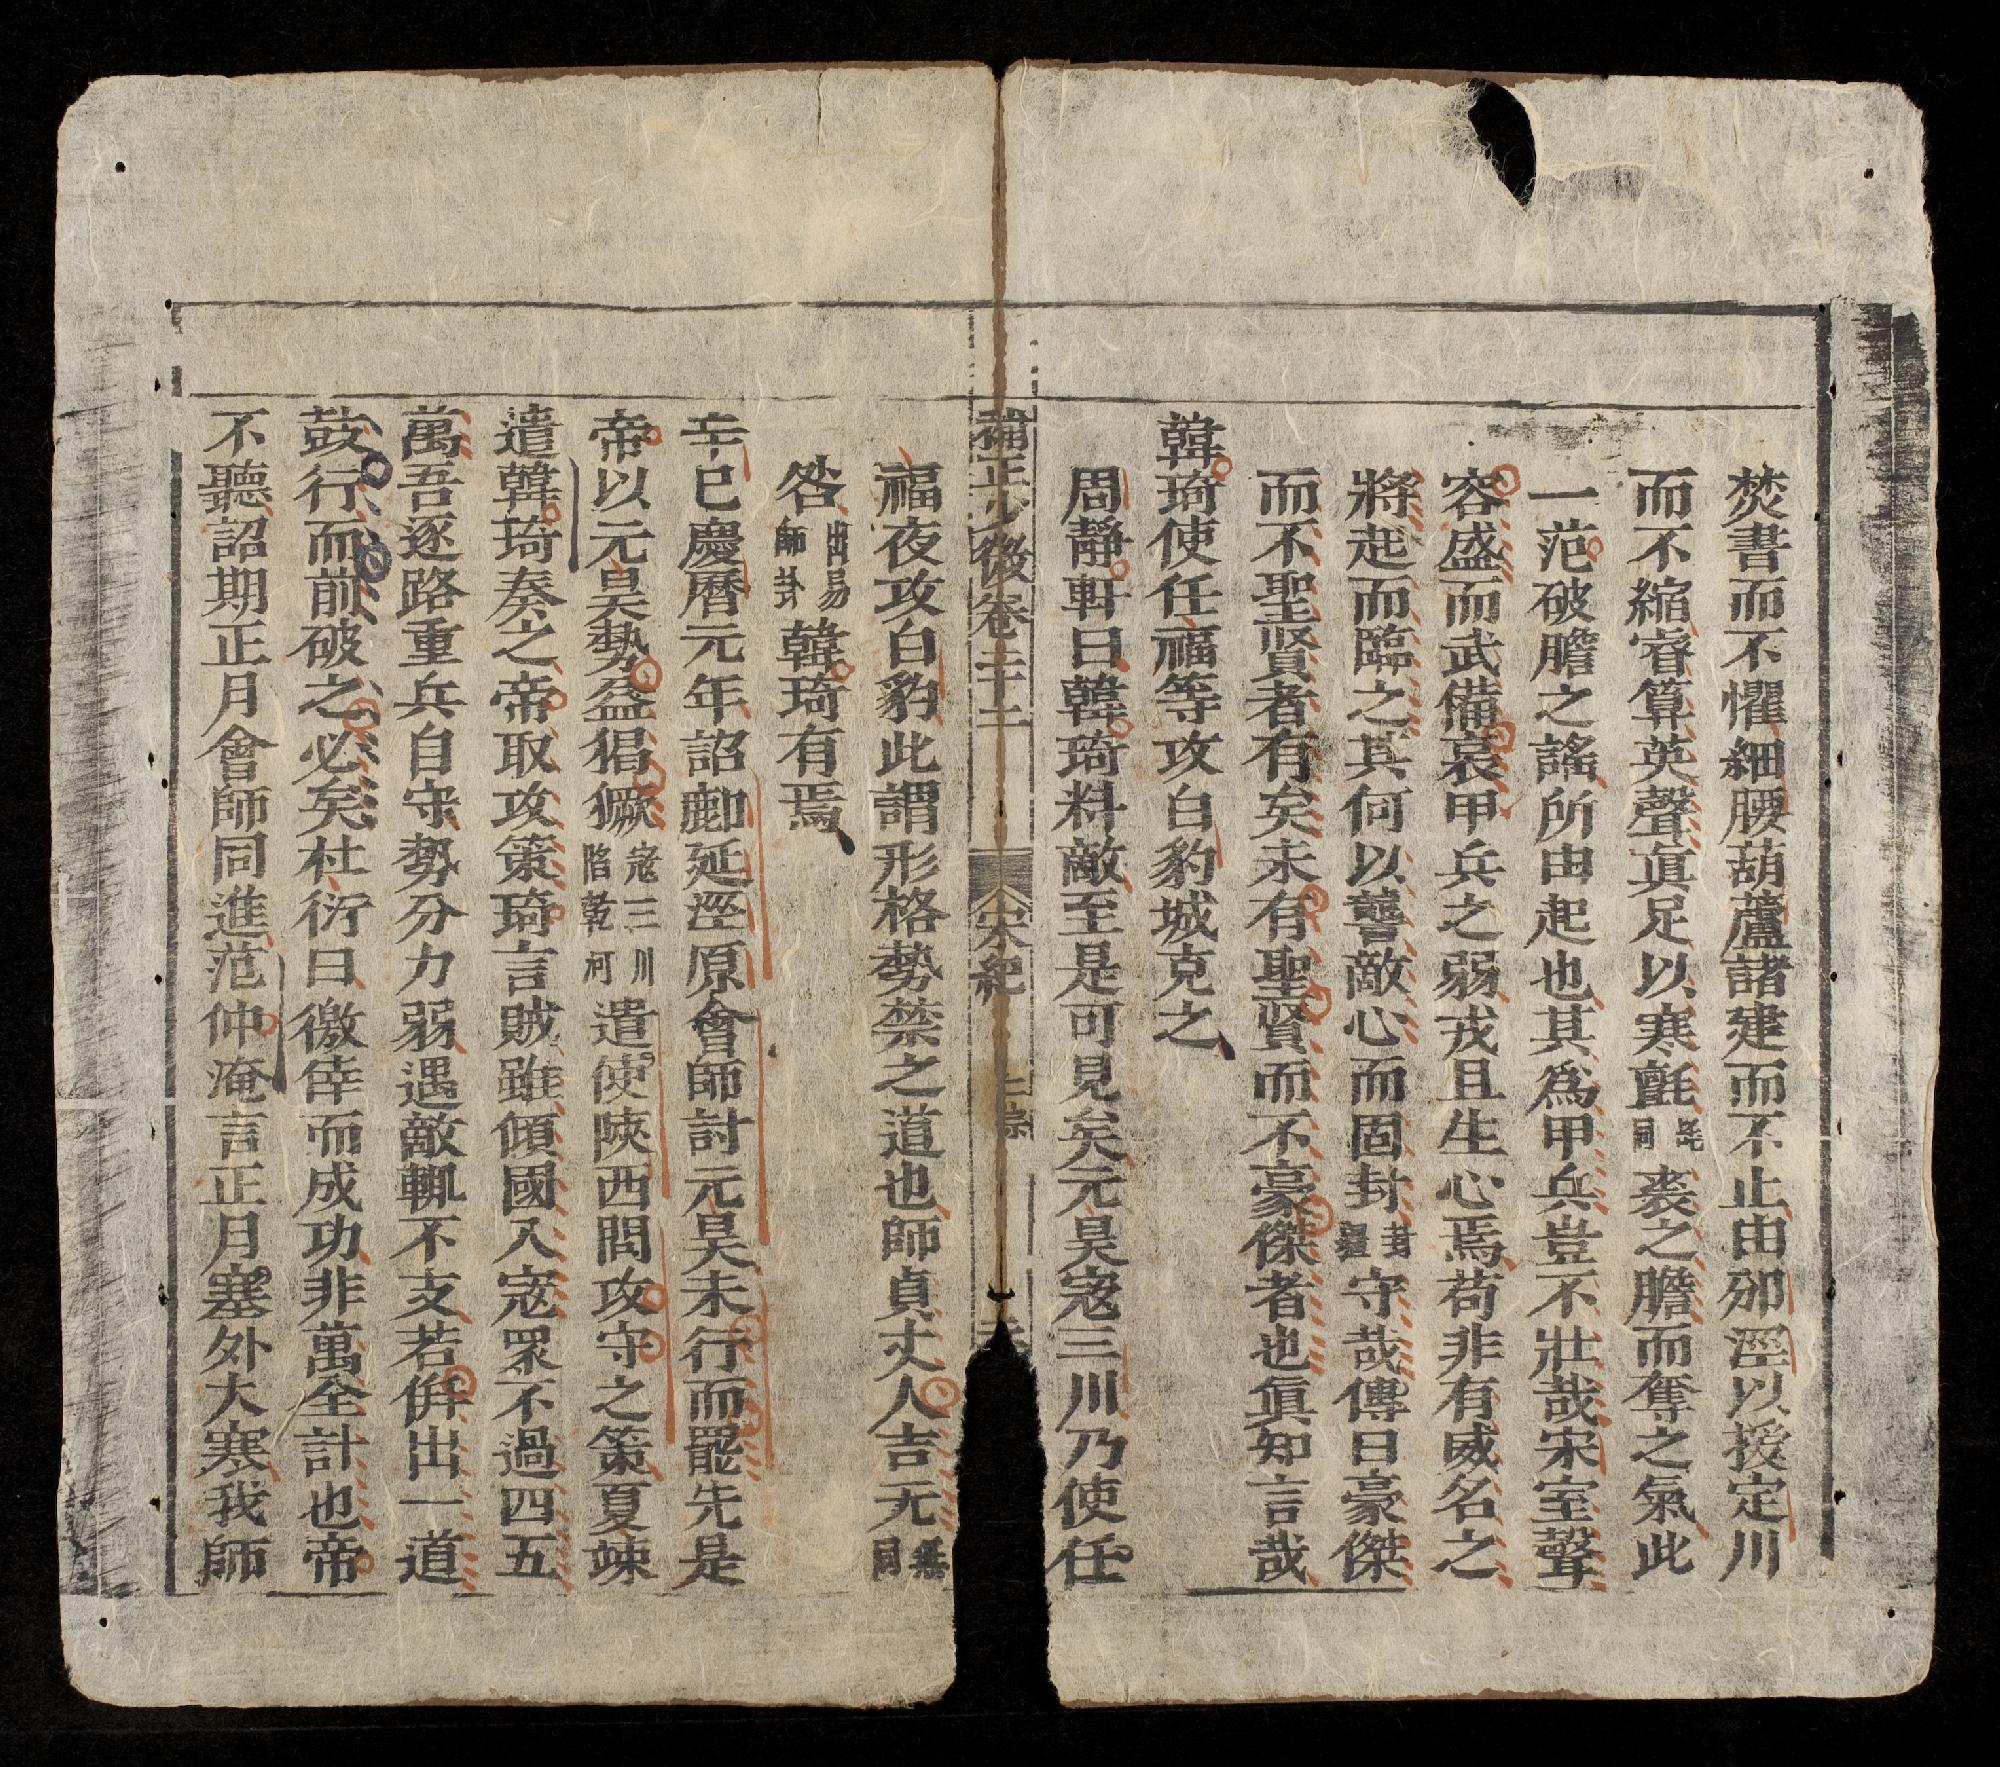 焚書而不懼細腰葫蘆諸建而不止由邠涇以援定川
而不縮睿算英聲眞足以寒氈毡同裘之膽而奪之氣此
一范破膽之謠所由起也其爲甲兵豈不壯哉宋室聲
容盛而武備衰甲兵之弱戎且生心焉苟非有威名之
將起而臨之其何以讋敵心而固封封疆守哉傳曰豪傑
而不聖賢者有矣未有聖賢而不豪傑者也眞知言哉
韓琦使任福等攻白豹城克之
周靜軒曰韓琦料敵至是可見矣元昊寇三川乃使任
補正少微卷二十二 宋紀 仁宗
福夜攻白豹此謂形格勢禁之道也師貞丈人吉无無同
咎出易師卦韓琦有焉
辛巳慶曆元年詔鄜延涇原會師討元昊未行而罷先是
帝以元昊勢益猖獗寇三川陷乾河遣使陝西問攻守之策夏竦
遣韓琦奏之帝取攻策琦言賊雖傾國入寇眾不過四五
萬吾逐路重兵自守勢分力弱遇敵輒不支若併出一道
鼓行而前破之必矣杜衍曰徼倖而成功非萬全計也帝
不聽詔期正月會師同進范仲淹言正月塞外大寒我師